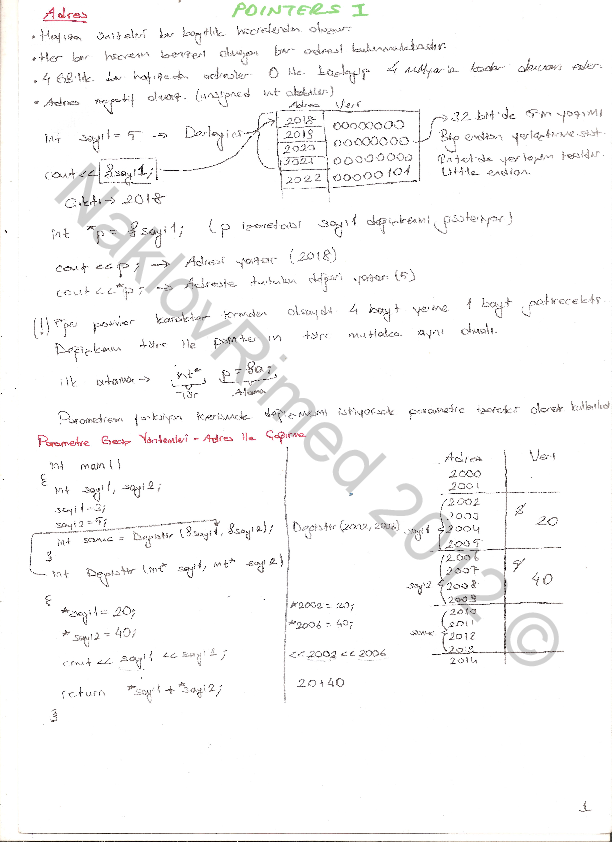 POINTERS I
Adres
• Hafıza üniteleri bir baytlık hücrelerden oluşur.
• Her bir hücrenin benzeri olmayan bir adresi bulunmaktadır.
• 4 GB'lik bir hafızada adresler 0 ile başlayıp 4 milyara kadar devam eder.
• Adres negatif olmaz. (unsigned int olabilir)
Adres Veri
int sayi1 = 5 → Derleyici →
2018 00000000
2019 00000000
2020 00000000
2021 00000101
2022
32 bit'de 5'in yazımı
Big endian yerleştirme
Intel'de yerleşim terstir.
Little endian.
cout << &sayi1;
Çıktı → 2018
int *p = &sayi1; (p işaretçisi sayi1 değişkenini gösteriyor)
cout << p; → Adresi yazar (2018)
cout << *p; → Adreste tutulan değeri yazar (5)
(!) Eğer pointer karakter türünden olsaydı 4 bayt yerine 1 bayt getirecekti.
Değişkenin türü ile pointer ın türü mutlaka aynı olmalı.
ilk atama → int* p = &a;
Tür Atama
Parametrenin fonksiyon içerisinde değişmesini istiyorsak parametre işaretçi olarak kullanılır
Parametre Geçiş Yöntemleri - Adres ile Çağırma
int main()
{
int sayi1, sayi2;
sayi1 = 3;
sayi2 = 5;
int sonuc = Degistir (&sayi1, &sayi2);
}
int Degistir (int* sayi1, int* sayi2)
{
*sayi1 = 20;
*sayi2 = 40;
cout << sayi1 << sayi2;
return *sayi1 + *sayi2;
}
Degistir (2002, 2006)
*2002 = 20;
*2006 = 40;
<< 2002 << 2006
20+40
Adres Veri
2000
2001
sayi1 2002 20
2003
2004
2005
sayi2 2006 40
2007
2008
2009
sonuc 2010
2011
2012
2013
2014
NaklovRimed 2012 ©
1